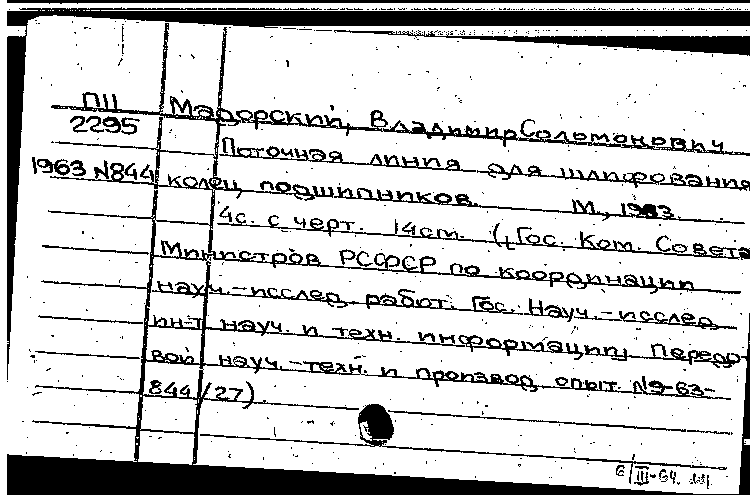 П11 Мадорский, Владимир Соломонович
2295
Поточная линия для шлифования
1963 №844 колец подшипников. М., 1963.
4с. с черт. 14см. (Гос. Ком. Совета
Министров РСФСР по координации
науч.-исслед. работ. Гос. Науч.-исслед.
ин-т науч. и техн. информации. Передо
вой науч.-техн. и производ. опыт. №9-63-
844/27).
6/III-64.